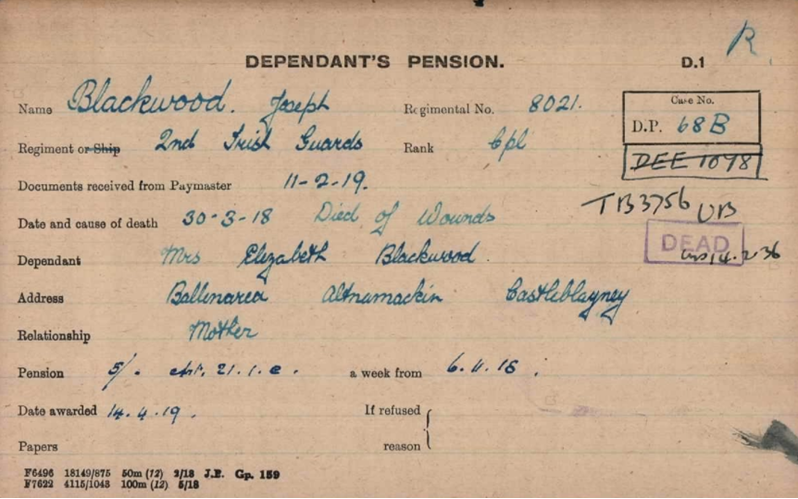 R
DEPENDANT'S PENSION. D.1
Name Blackwood. Joseph Regimental No. 8021.
Case No.
D.P. 68B
Regiment or Ship 2nd Irish Guards Rank Cpl
DEE 1098
Documents received from Paymaster 11-2-19.
TB3756 UB
Date and cause of death 30-3-18 Died of Wounds
DEAD
14.2.36
Dependant Mrs Elizabeth Blackwood.
Address Altnamackin Castleblayney
Relationship Mother
Pension 5/. Art. 21.1.c. a week from 6.11.18.
Date awarded 14.4.19. If refused
Papers reason
F6496 18149/875 50m (12) 2/18 J.P. Gp. 159
F7622 4115/1043 100m (12) 5/18